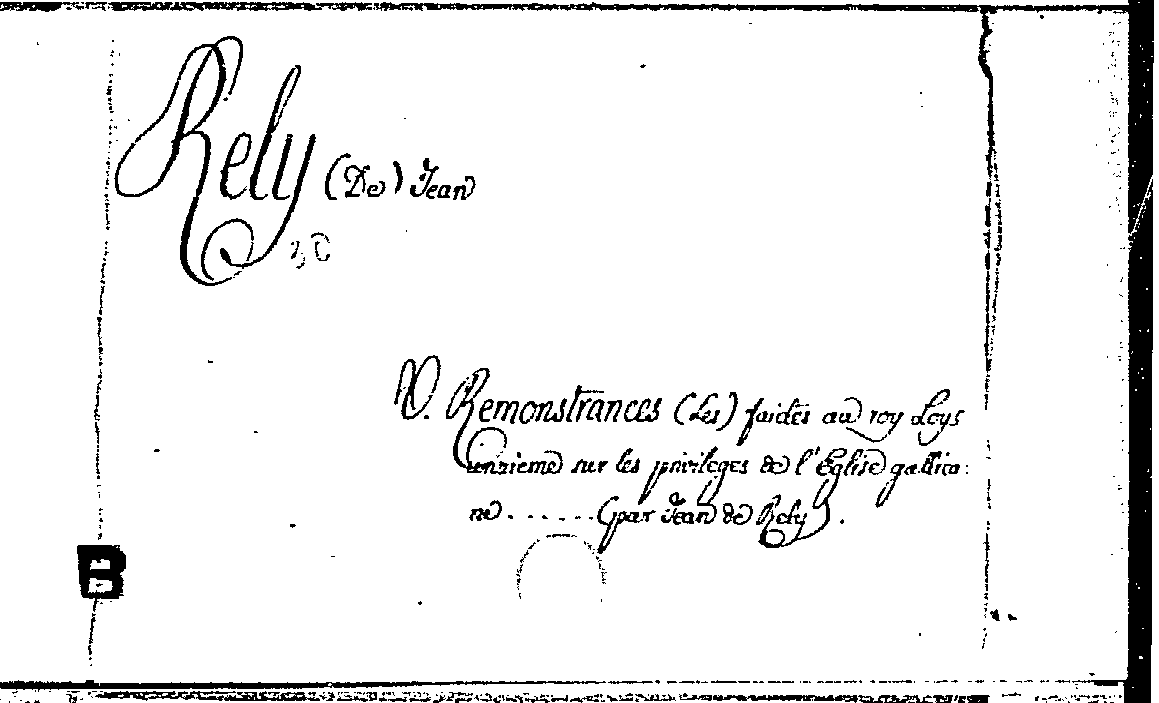 Rely (De) Jean
V. Remonstrances (Les) faictes au roy Loys
unzieme sur les privileges de l'Eglise gallica:
ne ...... (par Jean de Rely).
B